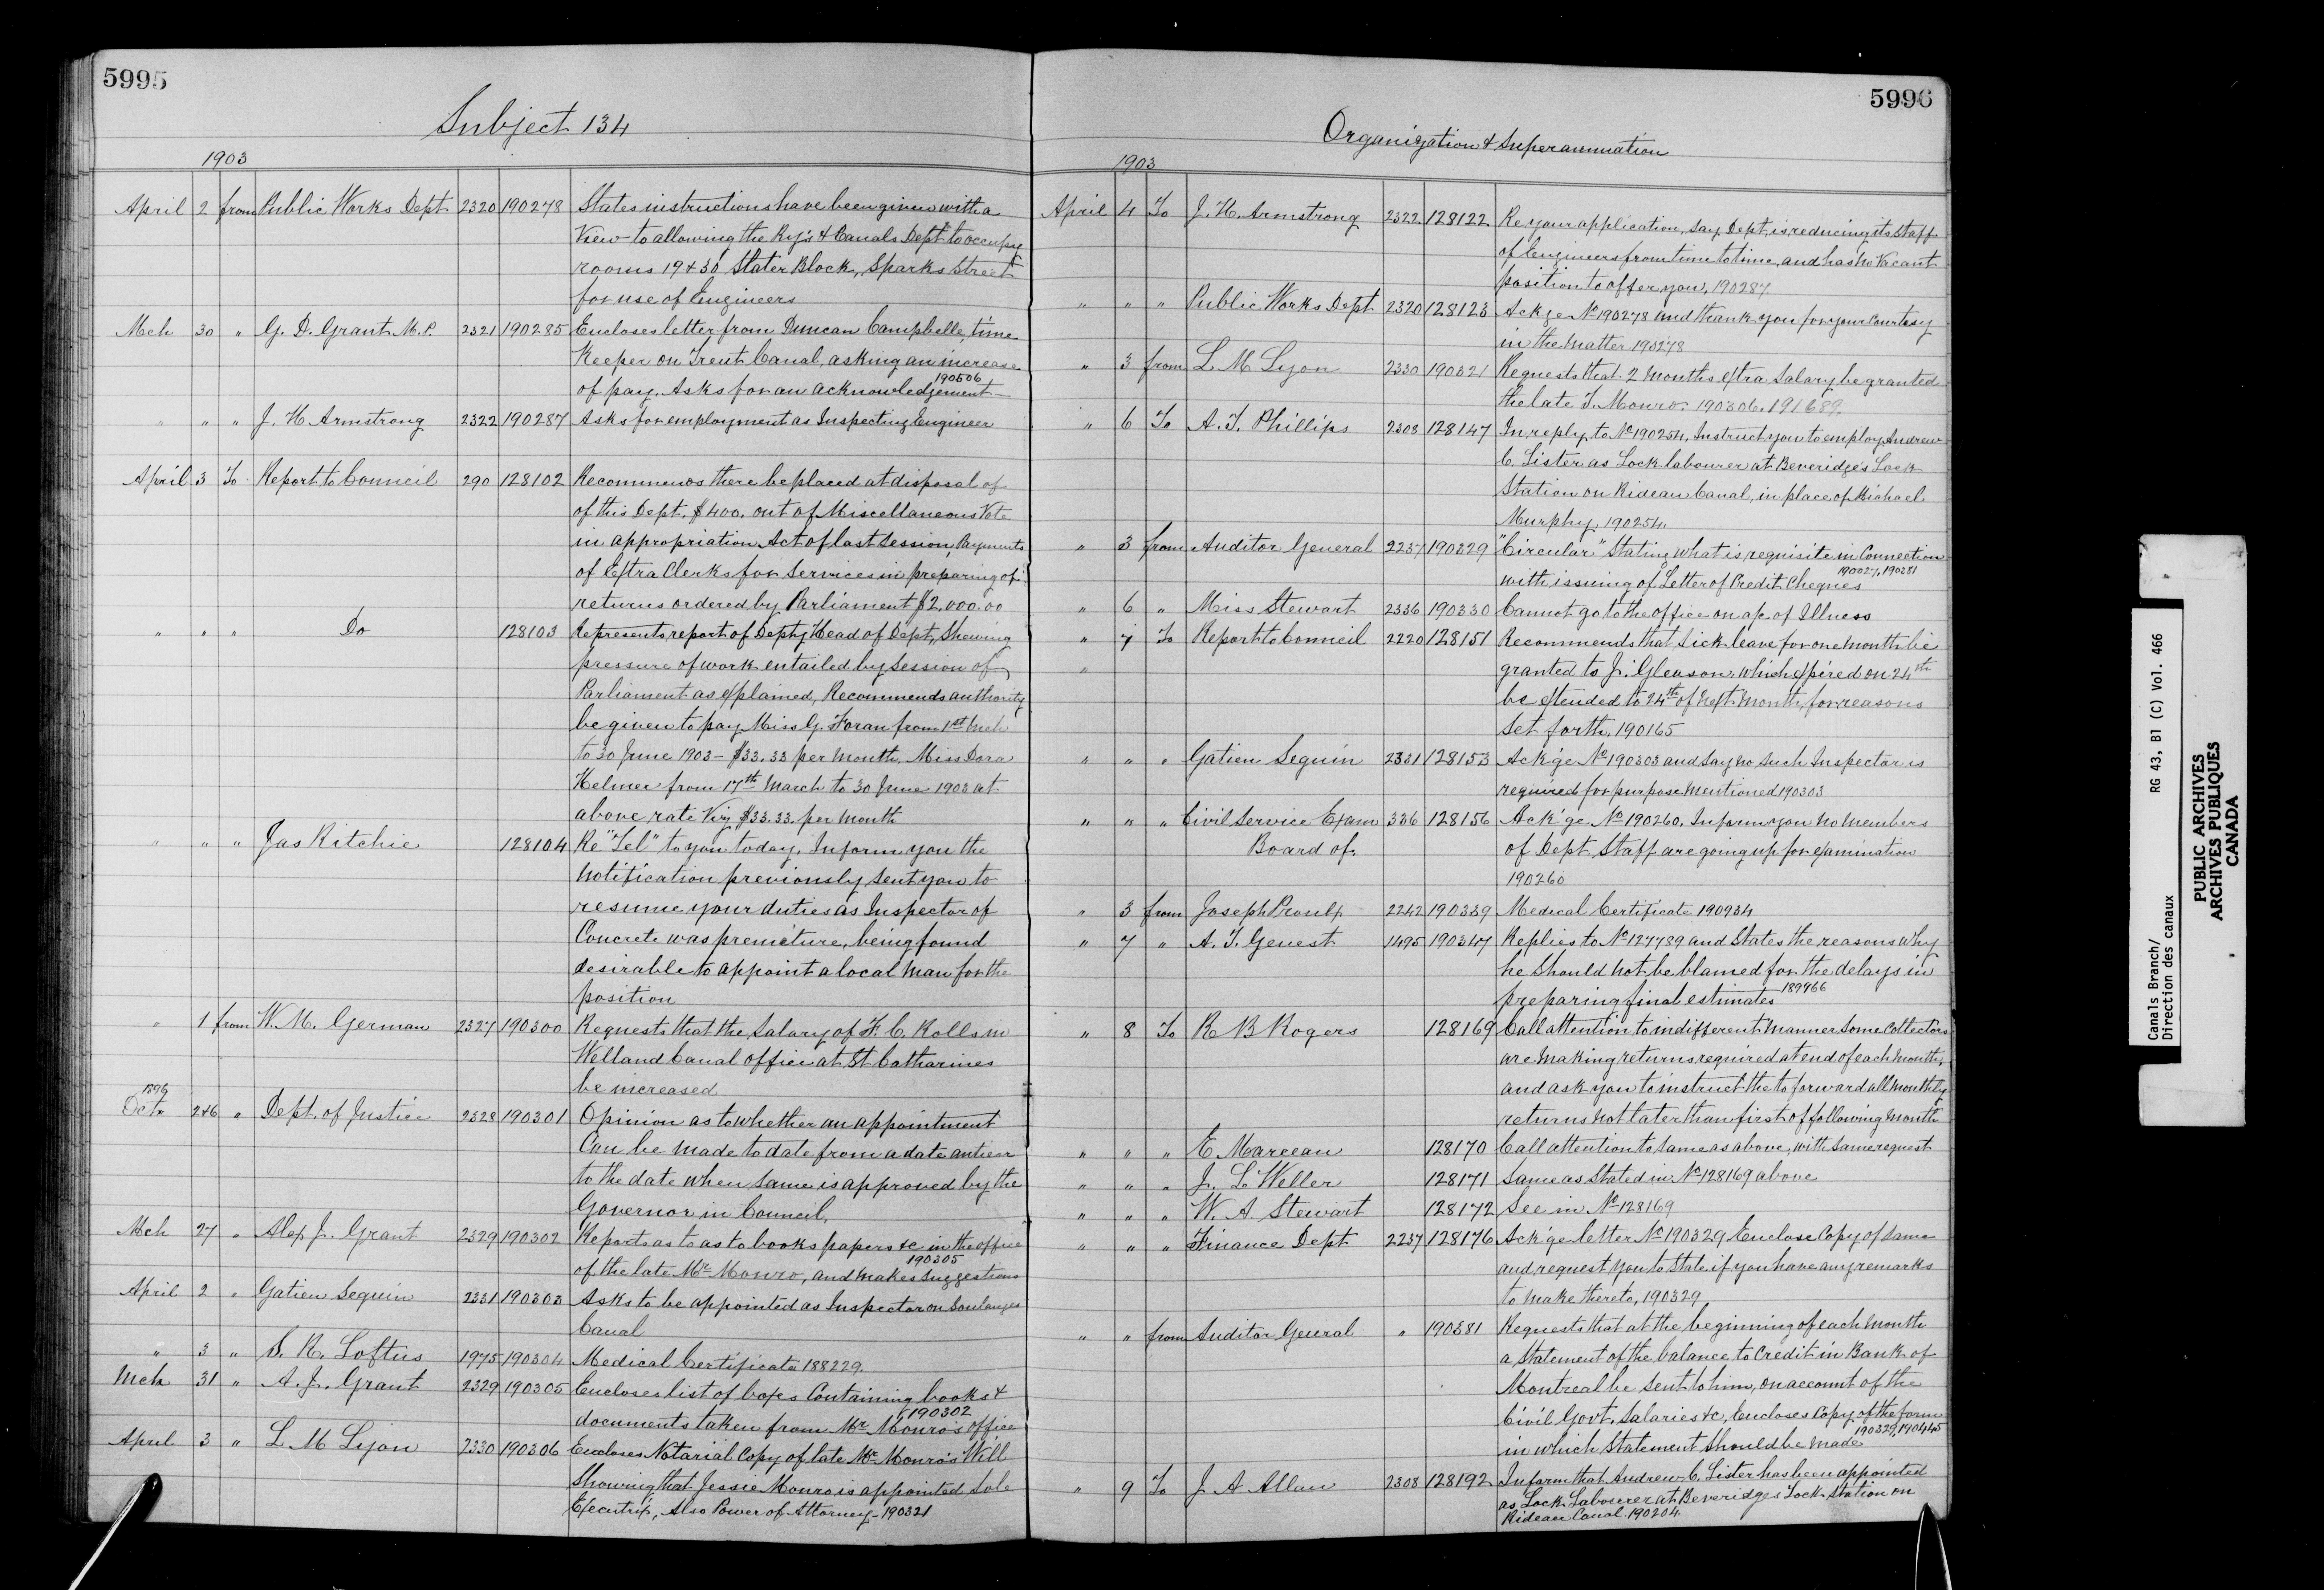 5995
Subject 134
1903
April 2 from Public Works Dept 2320 190278 States instructions have been given with a
view to allowing the Ry's & Canals Dept to occupy
rooms 19 & 30 Slater Block, Sparks Street
for use of Engineers
Mch 30 " G. D. Grant M.P. 2321 190285 Encloses letter from Duncan Campbelle, time
Keeper on Trent Canal, asking an increase
of pay. Asks for an acknowledgement 190506
" " " J. H. Armstrong 2322 190287 Asks for employment as Inspecting Engineer
April 3 To Report to Council 290 128102 Recommends there be placed at disposal of
of this Dept. $400. out of Miscellaneous Vote
in appropriation Act of last Session, Payments
of Extra Clerks for services in preparing of
returns ordered by Parliament $2,000.00
" " " Do 128103 Represents report of Depty Head of Dept, Shewing
pressure of work entailed by session of
Parliament as explained, Recommends authority
be given to pay Miss G. Foran from 1st Mch
to 30 June 1903 - $33.33 per month, Miss Dora
Helmer from 17th March to 30 June 1903 at
above rate Viz $33.33. per month
" " " Jas Ritchie 128104 Re "Tel" to you today. Inform you the
notification previously sent you to
resume your duties as Inspector of
Concrete was premature, being found
desirable to appoint a local man for the
position
" 1 from W. M. German 2327 190300 Requests that the Salary of F. C. Rolls in
Welland Canal office at St Catharines
be increased
1896
Octr 246 " Dept. of Justice 2328 190301 Opinion as to whether an appointment
Can be made to date from a date anterior
to the date when same is approved by the
Governor in Council,
Mch 27 " Alex J. Grant 2329 190302 Reports as to as to books papers &c in the office
of the late Mr Monro, and makes suggestions 190305
April 2 " Gatien Seguin 2331 190303 Asks to be appointed as Inspector on Soulanges
Canal
" 3 " S. R. Loftus 1975 190304 Medical Certificate 188229.
Mch 31 " A. J. Grant 2329 190305 Encloses list of boxes Containing books &
documents taken from Mr Monro's office 190302
April 3 " L M Lyon 2330 190306 Encloses Notarial Copy of late Mr Monro's Will
Showing that Jessie Monro is appointed Sole
Executrix, Also Power of Attorney - 190321
5996
Organization & Superannuation
1903
April 4 To J. H. Armstrong 2322 128122 Re your application, say Dept, is reducing its staff
of Engineers from time to time, and has no Vacant
position to offer you, 190287
" " " Public Works Dept 2320 128123 Ackge No 190278 and thank you for your Courtesy
in the matter 190278
" 3 from L. M Lyon 2330 190321 Requests that 2 months extra Salary be granted
the late T. Monro. 190306. 191689.
" 6 To A. T. Phillips 2308 128147 In reply to No 190254, Instruct you to employ Andrew
C. Lister as Lock labourer at Beveridges Lock
Station on Rideau Canal, in place of Michael
Murphy. 190254.
" 3 from Auditor General 2237 190329 "Circular" Stating what is requisite in Connection
with issuing of Letter of Credit Cheques 190027, 190381
" 6 " Miss Stewart 2336 190330 Cannot go to the office on a/c of Illness
" 7 To Report to Council 2220 128151 Recommends that sick leave for one month be
" granted to J. Gleason, which expired on 24th
be extended to 24th of next month, for reasons
Set forth, 190165
" " " Gatien Seguin 2331 128153 Ack'ge No 190303 and say no such Inspector is
required for purpose mentioned 190303
" " " Civil Service Exam 336 128156 Ack'ge No 190260. Inform you no members
Board of. of Dept Staff are going up for examination
190260
" 3 from Joseph Proulx 2242 190339 Medical Certificate 190934
" 7 " A. T. Genest 1495 190347 Replies to No 127789 and States the reasons why
he should not be blamed for the delays in
preparing final estimates 189966
" 8 To R B Rogers 128169 Call attention to indifferent manner some Collectors
are making returns required at end of each month,
and ask you to instruct the to forward all monthly
returns not later than first of following month
" " " E. Marceau 128170 Call attention to same as above, with same request
" " " J. L Weller 128171 Same as Stated in No 128169 above
" " " W. A Stewart 128172 See in No 128169
" " " Finance Dept 2237 128176 Ack'ge letter No 190329 Enclose Copy of same
and request you to State if you have any remarks
to make thereto, 190329
" " from Auditor General " 190381 Requests that at the beginning of each month
a Statement of the balance to Credit in Bank of
Montreal be sent to him, on account of the
Civil Govt. Salaries &c, Encloses Copy of the form
in which Statement should be made 190329, 190445
" 9 To J A Allan 2308 128192 Inform that Andrew C. Lister has been appointed
as Lock Labourer at Beveridges Lock Station on
Rideau Canal. 190204.
Canals Branch/ RG 43, B1 (C) Vol. 466
Direction des canaux
PUBLIC ARCHIVES
ARCHIVES PUBLIQUES
CANADA